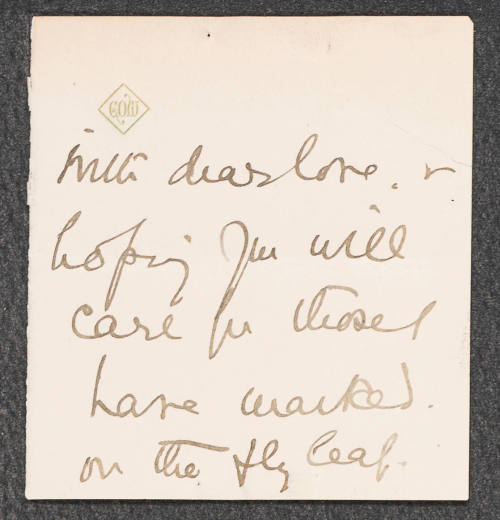 COW
With dear love, &
hoping you will
care for those I
have marked.
on the fly leaf.